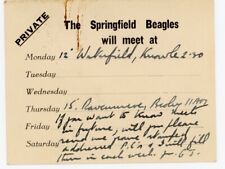 PRIVATE
The Springfield Beagles
will meet at
Monday 12 Wakefield, Knowle 2-30
Tuesday
Wednesday
Thursday 15. Ravenscroft,
If you want to know meets
Friday in future, will you please
send me some stamped
Saturday addressed P.C.s & I will fill
them in each week.